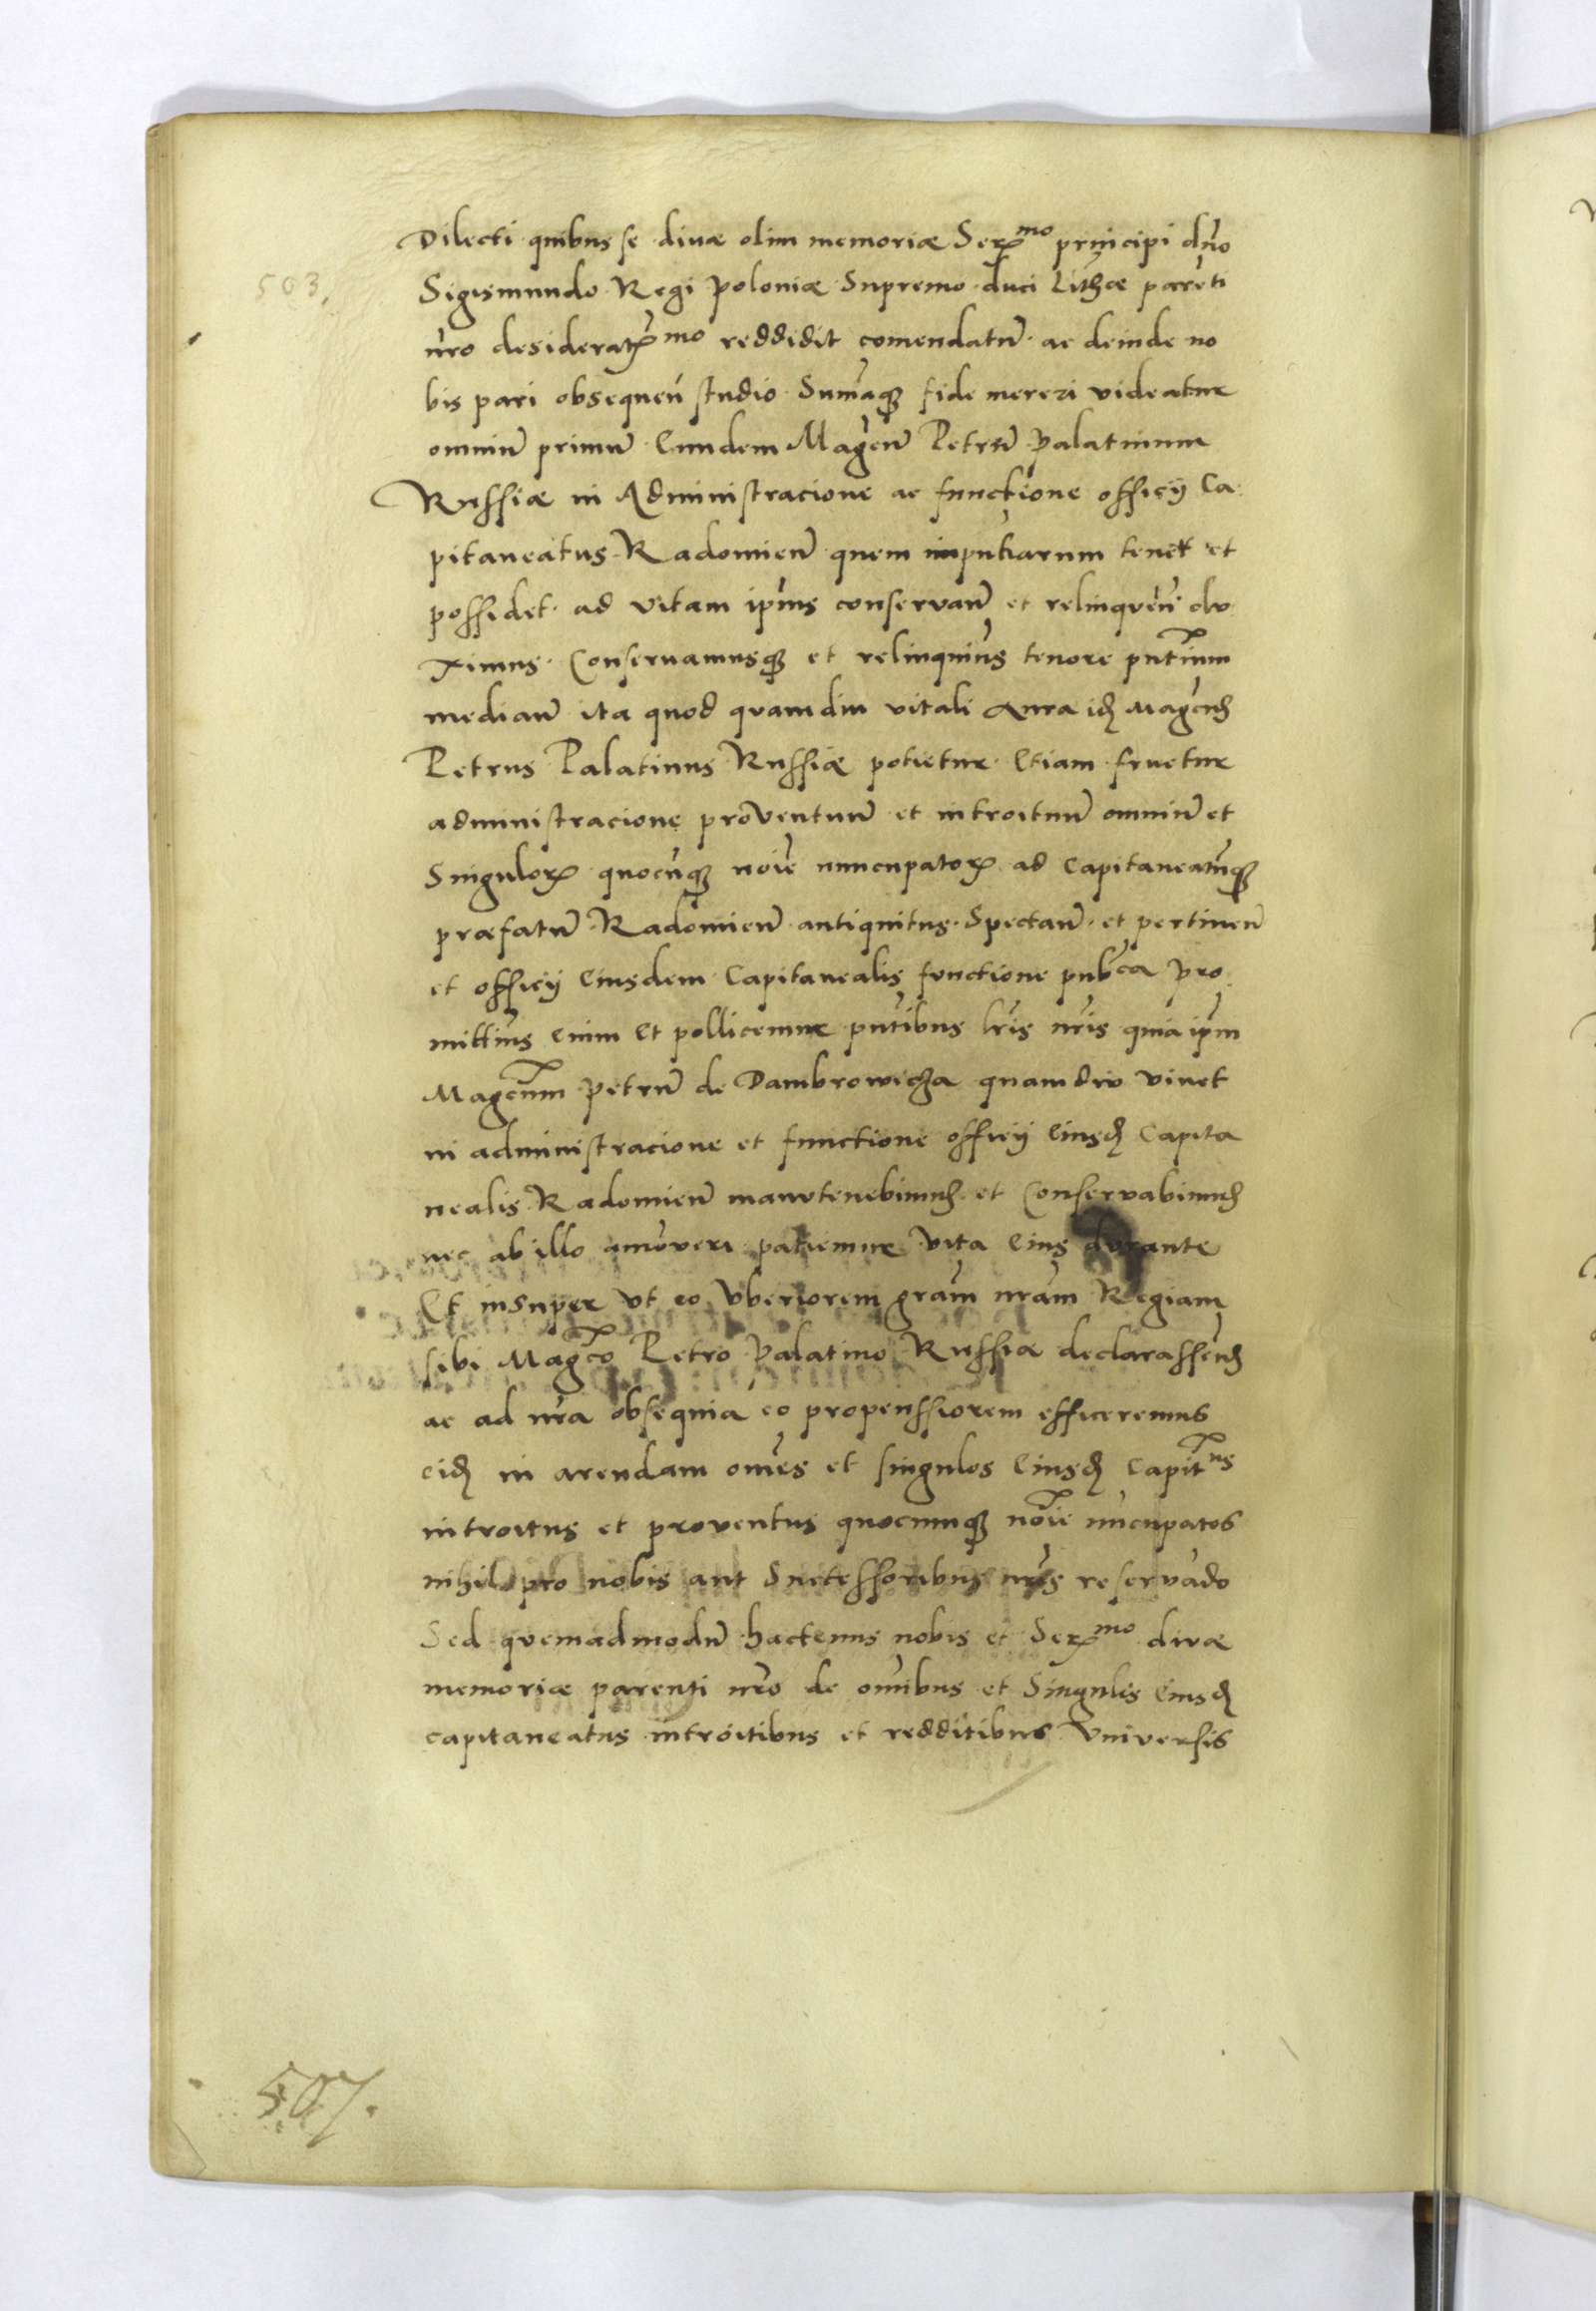 503.
Dilecti quibus se divæ olim memoriæ Ser^mo principi dn̄o
Sigismundo Regi Poloniæ Supremo duci Lith̄æ parēti
nr̄o desideratꝫ^mo reddidit comendatū ac deinde no
bis pari obsequen̄ studio Sum̄aqꝫ fide mereri videatur
omniū primū Eundem Magcn̄ Petrū Palatinum
Russiæ in Administracione ac functione officij Ca
pitaneatus Radomien̄ quem inpn̄tiarum tenet et
possidet ad vitam ip̄ius conservan̄ et relinquen̄ du
ximus Conservamusqꝫ et relinquim̄s tenore pn̄tium
median̄ ita quod quamdiu vitali Aura idꝫ Magcūs
Petrus Palatinus Russiæ potietur Etiam fruetur
administracione proventuū et introituū omniū et
Singulorꝫ quocūqꝫ noīe nuncupatorꝫ ad Capitaneatūqꝫ
præfatū Radomien̄ antiquitus Spectan̄ et pertinen̄
et officij Eiusdem Capitanealis functione pub^ca Pro
mittim̄s Enim Et pollicemur pn̄tibus lr̄is nr̄is quia ip̄m
Magcūm Petrū de Dambrowicza quamdiu vivet
in administracione et functione officij Eiusdꝫ Capita
nealis Radomien̄ manutenebimus et Conservabimus
nec ab illo amoveri patiemur vita Eius durante
Et insuper vt eo vberiorem gra͞m nra͞m Regiam
sibi Magc̄o Petro Palatino Russiæ declarassem̄s
ac ad nr̄a obsequia eo propenssiorem efficeremus
eidꝫ in arendam om̄es et singulos Eiusdꝫ Capit^us
introitus et proventus quocumqꝫ noīe nūcupatos
nihil pro nobis aut Successoribus nr̄is reservādo
Sed quemadmodū hactenus nobis et Ser^mo divæ
memoriæ parenti nr̄o de om̄ibus et Singulis Eiusdꝫ
capitaneatus introitibus et redditibus Vniversis
507.